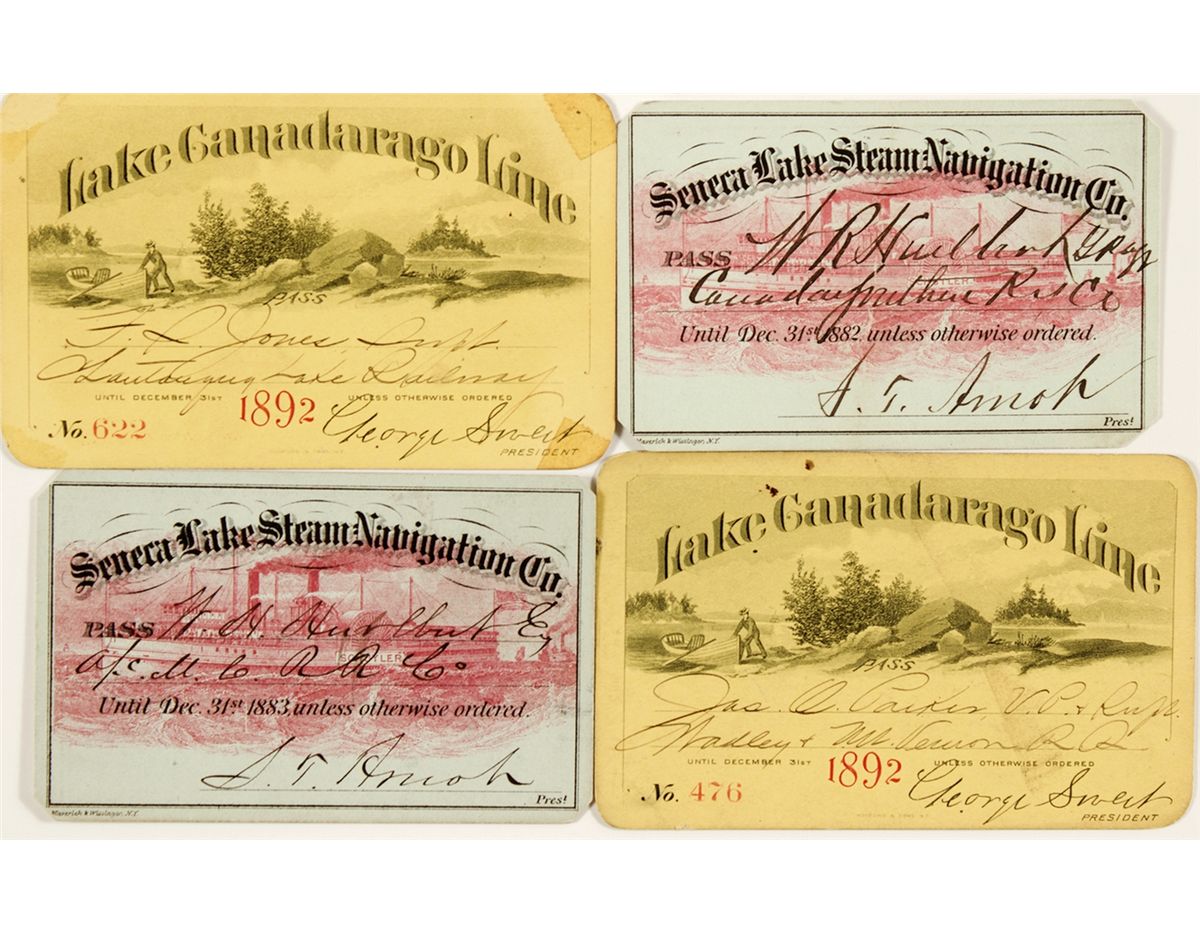 Lake Canadarago Line
PASS
F. R. Jones, Supt.
Lake Railway
UNTIL DECEMBER 31ST 1892 UNLESS OTHERWISE ORDERED
No. 622
George Sweet
PRESIDENT
Seneca Lake Steam Navigation Co.
PASS W R Hurlburt
Until Dec. 31st 1882, unless otherwise ordered.
S. T. Arnot
Prest
Maverick & Wissinger, N.Y.
Seneca Lake Steam Navigation Co.
PASS W H Hurlburt Esq
a/c M. C. R R Co
Until Dec. 31st 1883, unless otherwise ordered.
S T Arnot
Prest
Maverick & Wissinger, N.Y.
Lake Canadarago Line
PASS
Jas. A. Parker, V. P. & Supt.
Wadley & Mt. Vernon R R
UNTIL DECEMBER 31ST 1892 UNLESS OTHERWISE ORDERED
No. 476
George Sweet
PRESIDENT